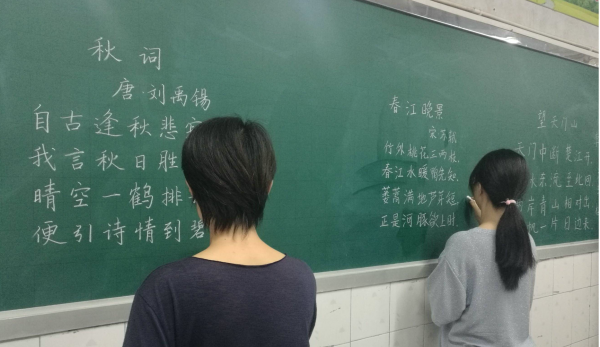 秋词
唐·刘禹锡
自古逢秋悲
我言秋日胜
晴空一鹤排
便引诗情到碧
春江晚景
宋 苏轼
竹外桃花三两枝,
春江水暖鸭先知。
蒌蒿满地芦芽短,
正是河豚欲上时
望天门山
天门中断楚江开
水东流至此回
岸青山相对出
帆一片日边来